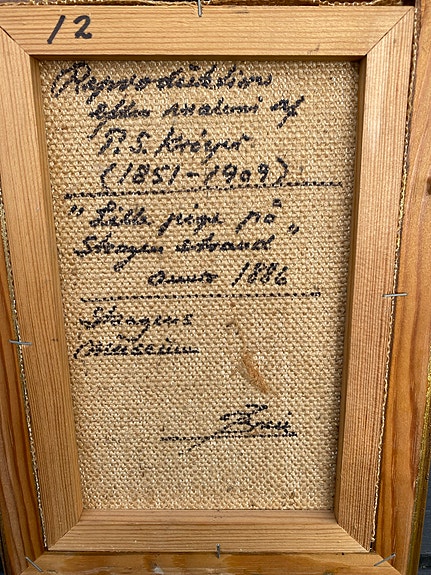 12
Reproduktion
efter maleri af
P.S. Krøyer
(1851-1909)
"Lille pige på
Skagen strand"
anno 1886
Skagens
museum